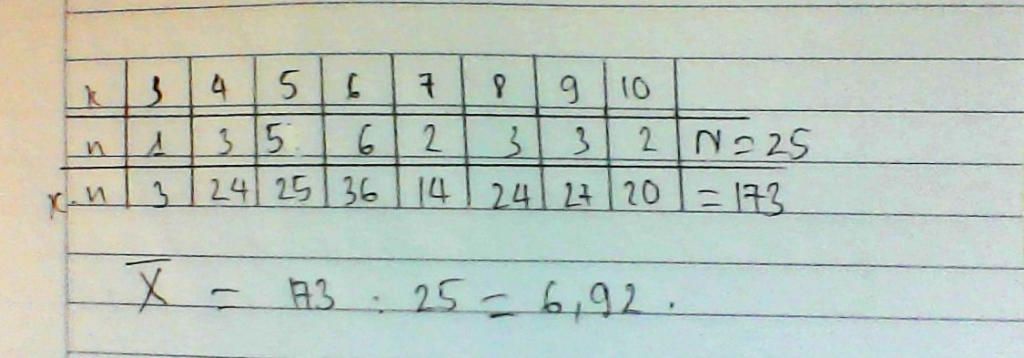 x 3 4 5 6 7 8 9 10
n 1 3 5 6 2 3 3 2 N = 25
x.n 3 24 25 36 14 24 27 20 = 173
X̅ = 173 : 25 = 6,92.